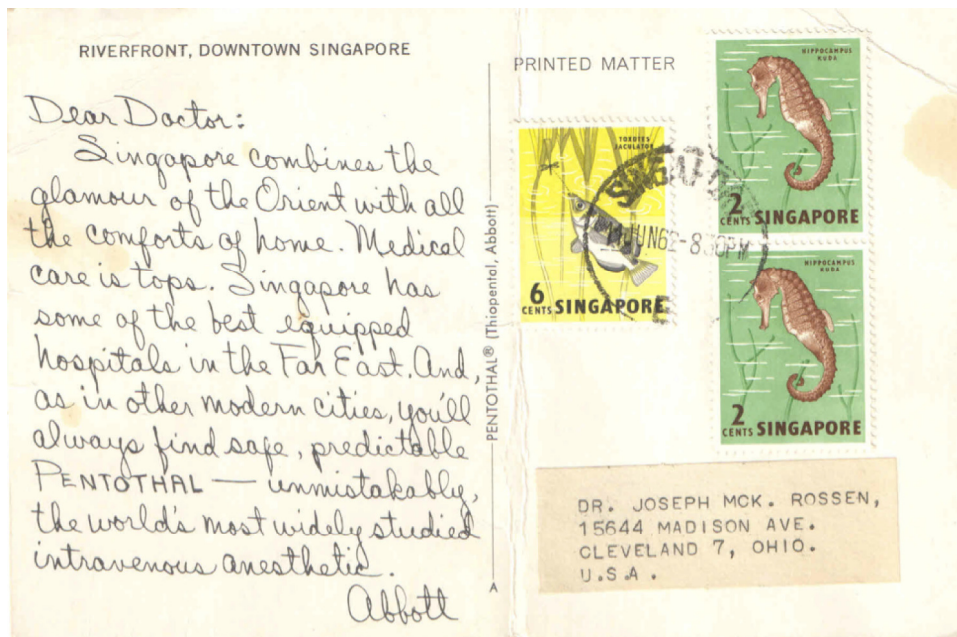 RIVERFRONT, DOWNTOWN SINGAPORE
Dear Doctor:
Singapore combines the
glamour of the Orient with all
the comforts of home. Medical
care is tops. Singapore has
some of the best equipped
hospitals in the Far East. And,
as in other modern cities, you'll
always find safe, predictable
PENTOTHAL — unmistakably,
the world's most widely studied
intravenous anesthetic.
Abbott
PENTOTHAL® (Thiopental, Abbott)
A
PRINTED MATTER
TOXOTES
JACULATOR
6
CENTS SINGAPORE
HIPPOCAMPUS
KUDA
2
CENTS SINGAPORE
HIPPOCAMPUS
KUDA
2
CENTS SINGAPORE
JUN
PM
DR. JOSEPH MCK. ROSSEN,
15644 MADISON AVE.
CLEVELAND 7, OHIO.
U.S.A.